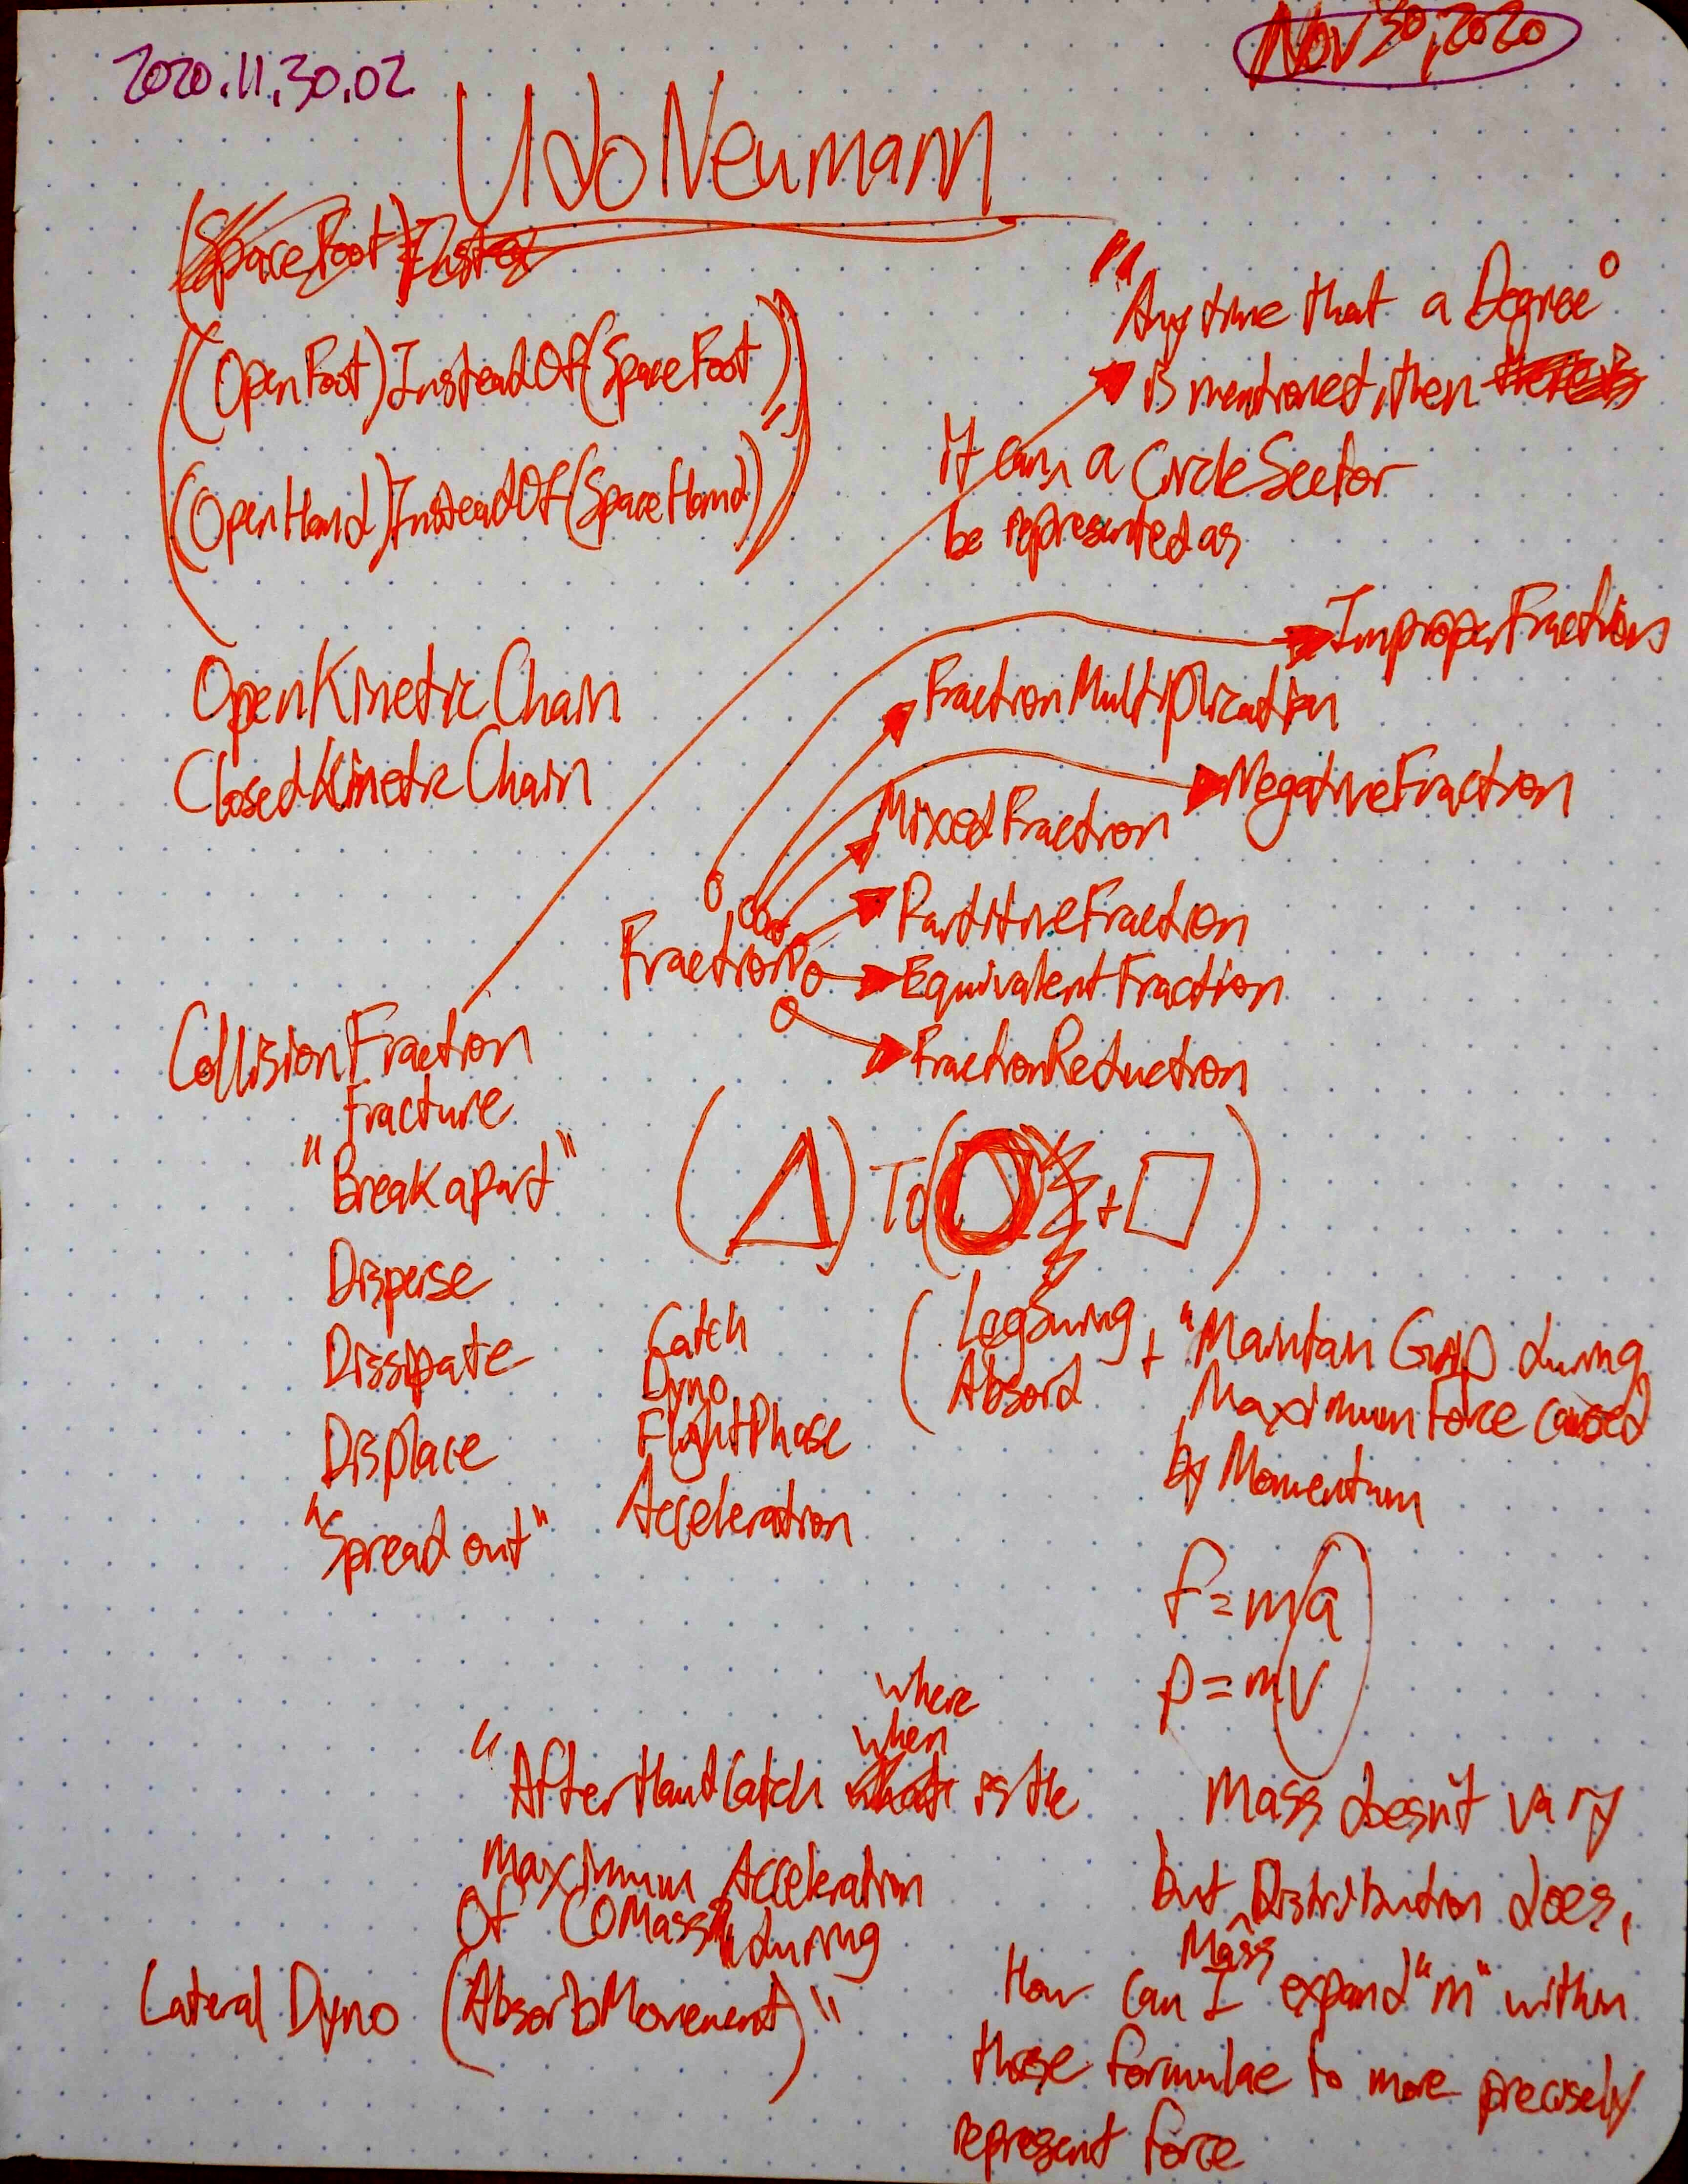 2020.11.30.02
Nov 30, 2020
Udo Neumann
(SpaceFoot)Inste
((OpenFoot)InsteadOf(SpaceFoot)),
(OpenHand)InsteadOf(SpaceHand))
"Anytime that a Degree°
is mentioned, then
it can a CircleSector
be represented as
OpenKineticChain
ClosedKineticChain
ImproperFractions
FractionMultiplication
NegativeFraction
MixedFraction
PartitiveFraction
Fraction
EquivalentFraction
FractionReduction
CollisionFraction
Fracture
"Break apart"
Disperse
Dissipate
Displace
"Spread out"
( ) To ( ) + )
Catch
Dyno
FlightPhase
Acceleration
(LegSwing
Absord
+ "Maintan Grip during
Maximum Force caused
by Momentum
F=ma
p=mv
where
when
"AfterHandCatch what is the
Maximum Acceleration
Of COMass during
Lateral Dyno (AbsorbMovement)"
Mass doesn't vary
but Distribution does,
Mass
How can I expand "m" within
those formulae to more precisely
represent force